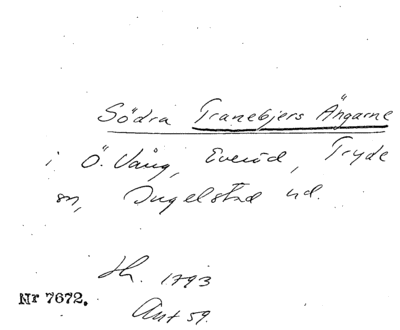 Södra Tranebjers Ängarne
i Ö. Vång, Everöd, Tryde
sn, Ingelstad hd.
Sk. 1793
Nr 7672.
Akt 59.